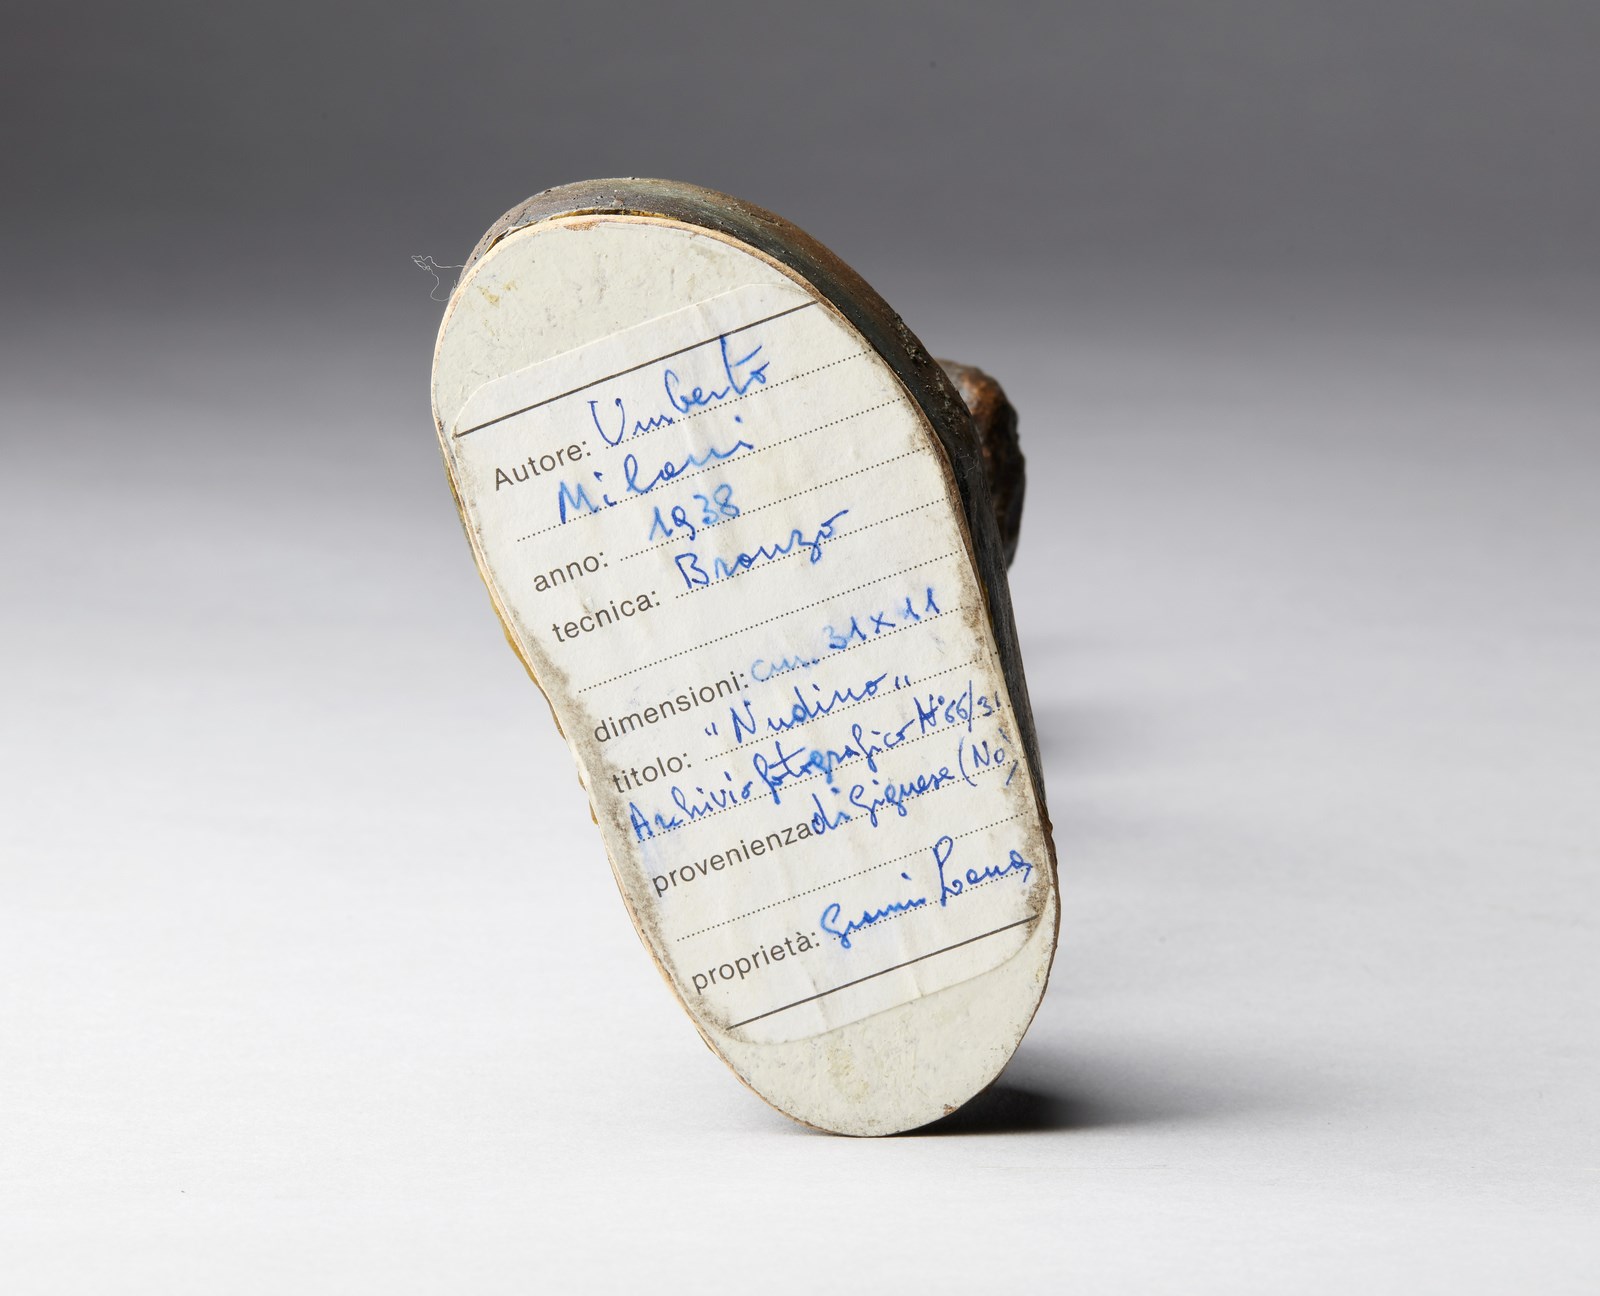 Autore: Umberto
Milani
anno: 1938
tecnica: Bronzo
dimensioni: cm. 31x11
titolo: "Nudino"
Archivio fotografico N° 66/31
provenienza di Gignese (No)
proprietà: Gianni